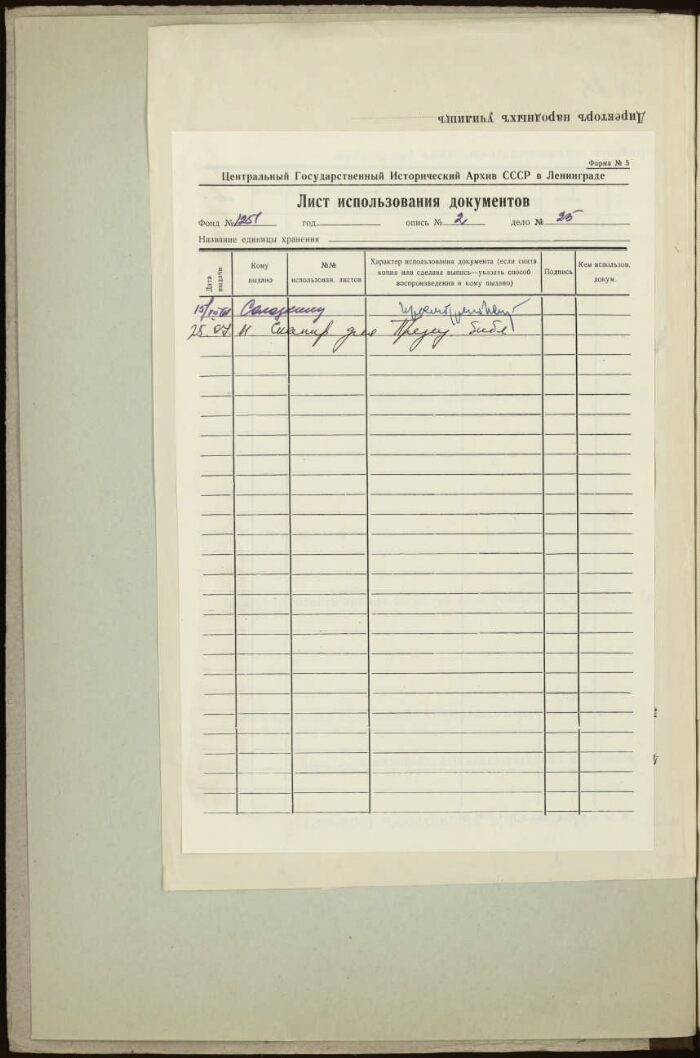 Директоръ народныхъ училищъ
Форма № 5
Центральный Государственный Исторический Архив СССР в Ленинграде
Лист использования документов
Фонд № 1251 год опись № 2 дело № 25
Название единицы хранения
Дата выдачи
Кому выдано
№№ использован. листов
Характер использования документа (если снята копия или сделана выпись—указать способ воспроизведения и кому выдано)
Подпись
Кем использов. докум.
15/
25.07. Сканир для Презид. библ